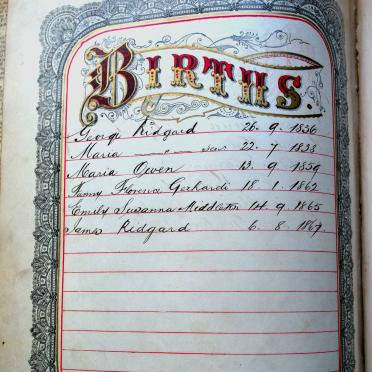 BIRTHS.
George Ridgard 26. 9. 1836
Maria — " — sen 22. 7 1838
Maria Owen 13. 9 1859
Fanny Florence Gerhardi 18. 1. 1862
Emily Susanna Middleton 14. 9. 1865
James Ridgard 6. 8. 1867.